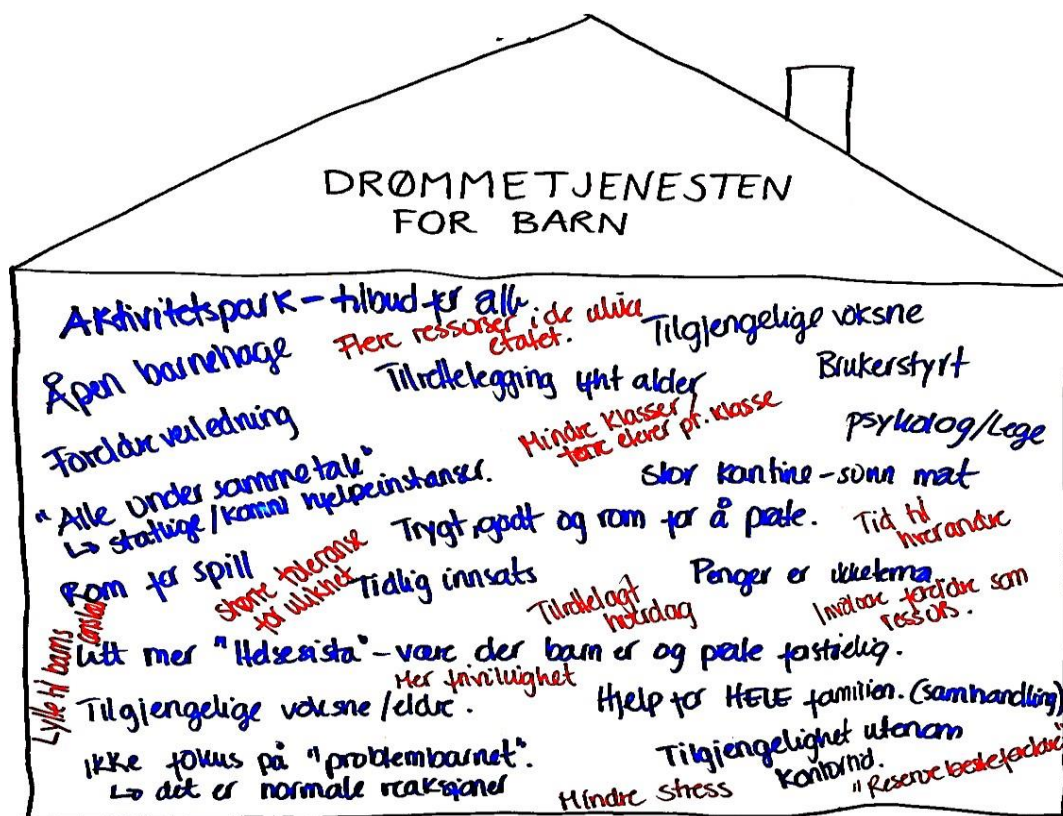 DRØMMETJENESTEN
FOR BARN
Aktivitetspark - tilbud for alle.
Flere ressurser i de ulike
etatet.
Tilgjengelige voksne
Åpen barnehage
Tilrettelegging ift alder
Brukerstyrt
Foreldreveiledning
Mindre klasser/
færre elever pr. klasse
psykolog/Lege
"Alle under samme tak"
↳ statlige/komm hjelpeinstanser.
Stor kantine - sunn mat
Trygt, godt og rom for å prate.
Tid til
hverandre
Rom for spill
større toleranse
for ulikhet
Tidlig innsats
Tilrettelagt
hverdag
Penger er ikke tema
Involvere foreldre som
ressurs.
Lytte til barns
ønsker
Litt mer "Helsesista" - være der barn er og prate fortrolig.
Mer frivillighet
Tilgjengelige voksne/eldre.
Hjelp for HELE familien. (samhandling)
Ikke fokus på "problembarnet".
↳ det er normale reaksjoner
Tilgjengelighet utenom
kontortid.
Mindre stress
"Reservebesteforeldre"